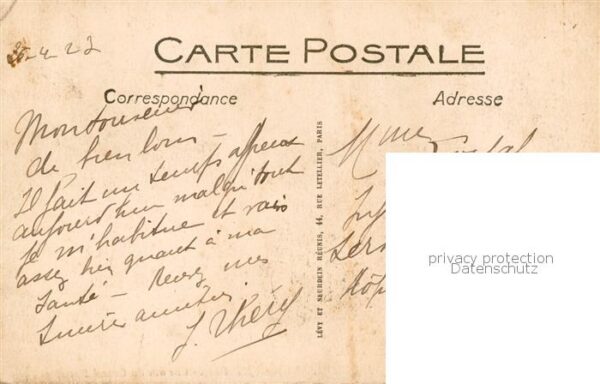 CARTE POSTALE
Correspondance
Adresse
Mon souvenir
de bien loin –
Il fait un temps affreux
aujourd'hui malgré tout
je m'habitue et vais
assez bien quant à ma
santé – Recevez mes
sincères amitiés.
J. Théry
LÉVY ET NEURDEIN RÉUNIS, 44, RUE LETELLIER, PARIS
Mme
privacy protection
Datenschutz